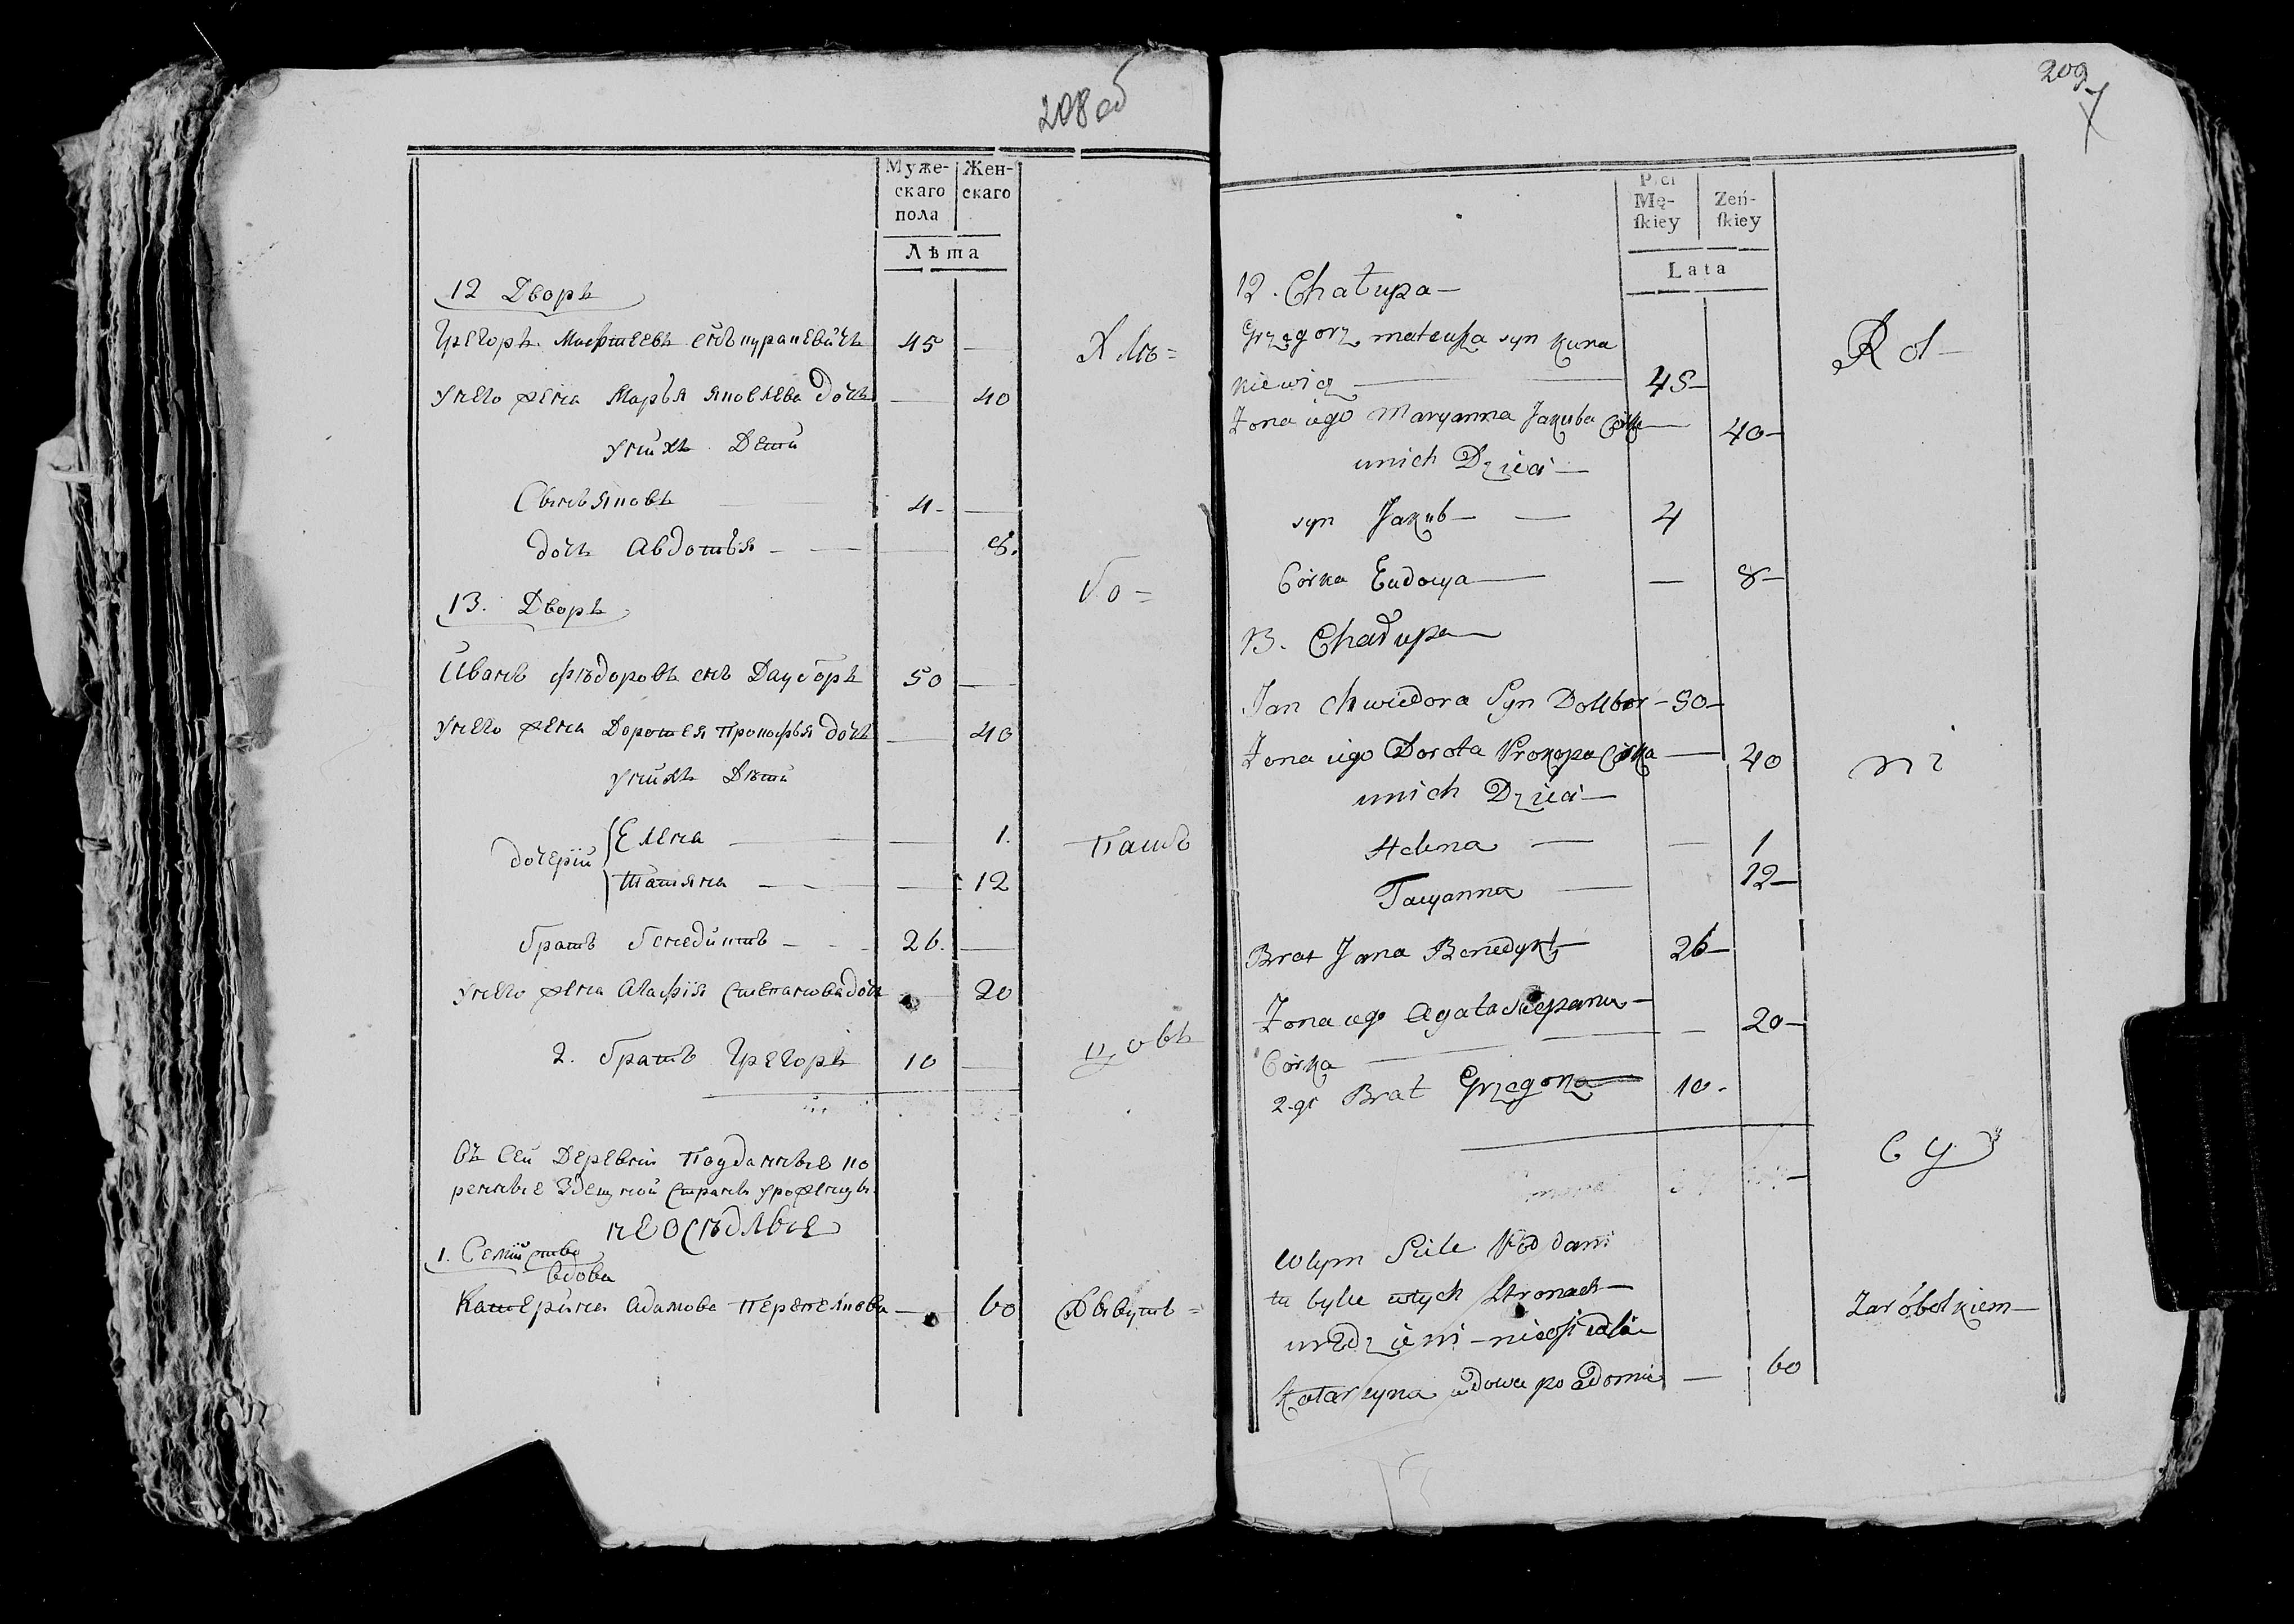 208 об
Муже-
скаго
пола
Жен-
скаго
Лѣта
12 Дворъ
Грегоръ Матѣевъ снъ куракевичъ 45 —
Хлѣ=
у него жена Марья яковлева дочь — 40
у нихъ Дети
Сынъ яковъ 4 —
дочь Авдотья — 8.
бо=
13. Дворъ
Иванъ Фѣдоровъ снъ Дауборъ 50 —
у него жена Доротея Прокофья дочь — 40
у нихъ Дѣти
дочерии
Елена — 1.
Татяна — 12
Пашъ
братъ бенедиктъ — 26. —
у него жена Агафiя степанова дочь — 20
2. братъ Грегоръ 10 —
цовъ
въ сей Деревни Подданные ко
ренные Здешной стране уроженцы
неосѣдлые
1. Семийство
вдова
Катерина адамова — 60
209
Płci
Mę-
ſkiey
Zeń-
ſkiey
Lata
12. Chałupa —
Grzegorz mateusza syn kura
kiewicz — 45 —
Rol —
Żona iego Maryanna Jakuba Córka — 40 —
unich Dzieci —
syn Jakub — 4
Córka Eudocya — 8 —
13. Chałupa —
Jan Chwiedora Syn Dołbor — 50 —
Żona iego Dorota Prokopa Córka — 40
ni
unich Dzieci —
Helena — 1
Tacyanna — 12 —
Brat Jana Benedykt — 26 —
Żona iego Agata Stepana — 20 —
Córka
2-gi Brat Grzegorz — 10 -
cy
W tym Siele Poddani
tu bylie wtych Stronach —
urodzieni — nieosiedli
Katarzyna wdowa po adamie — 60
Zarobkiem —